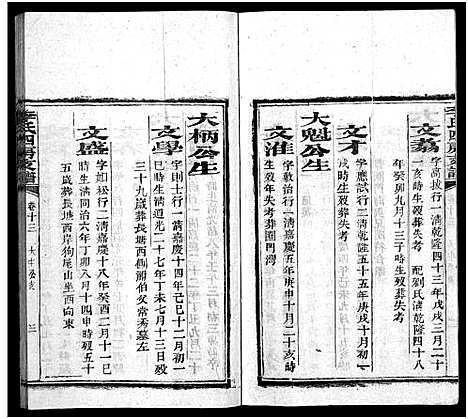 文荔
字高拔行一清乾隆四十三年戊戌三月二十
一亥時生歿葬失考 配劉氏清乾隆四十八
年癸卯九月十三子時生歿葬失考
文才
字應試行二清乾隆五十五年庚戌十月初一
戌時生歿葬失考
大魁公生
文淮
字敦治行一清嘉慶五年庚申十月二十亥時
生歿年失考葬圈門灣
大柄公生
文學
字則士行一清嘉慶十四年己巳十二月初一
巳時生清道光二十七年丁未十一月十三歿
三十九歲葬長塘西岸關船伯父常秀墓左
文盛
字如松行二清嘉慶十八年癸酉二月十一巳
時生清同治六年丁卯八月十四申時歿五十
五歲葬長塘西岸狗尾山坐西向東
李氏四房支譜
卷十三
三